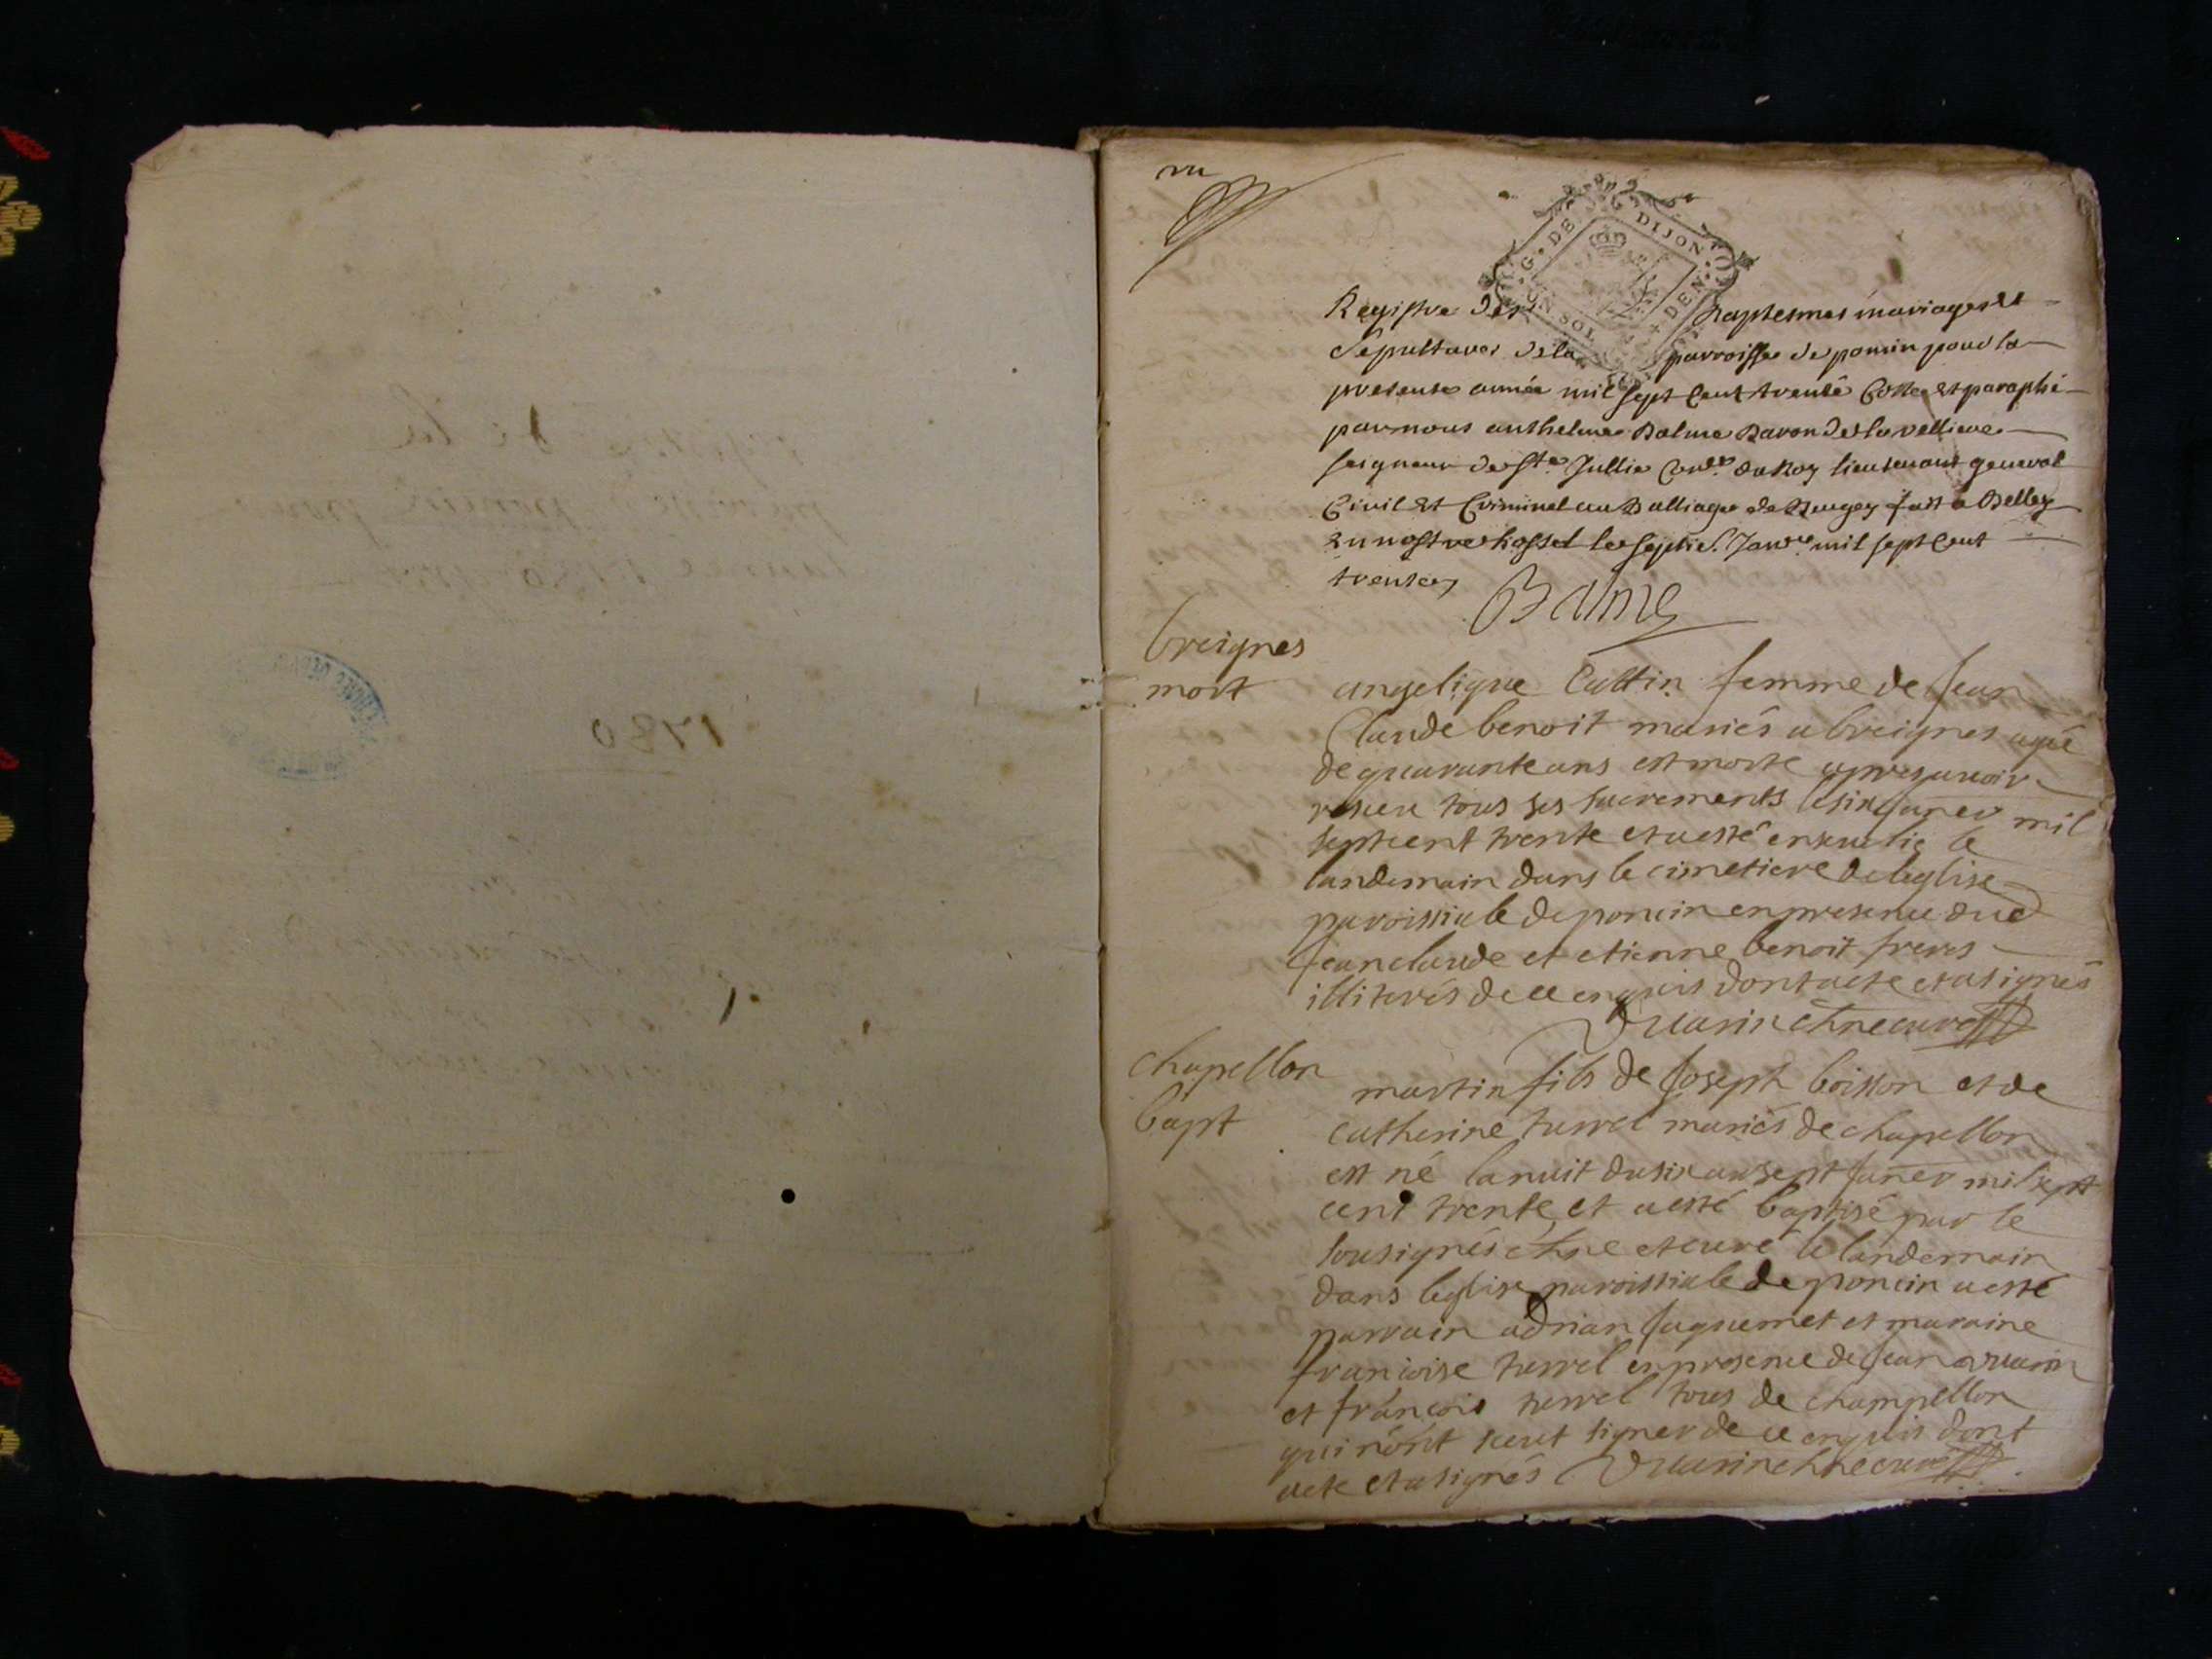 1730
vu
G. DE DIJON
UN SOL DEN.
Registre des baptesmes mariages et
Sepultures de la parroisse de poncin pour la
presente année mil sept cent trente Cotté et paraphé
par nous anthelme Balme Baron de la velliere
seigneur de Ste Jullie Conser du Roy lieutenant general
Civil et Criminel au Balliage de Beugey fait a Belley
en nostre hostel le septie. Janvre mil sept cent
trente
Balme
breignes
mort
angelique Cattin femme de Jean
Claude benoit mariés a breignes agée
de quarante ans est morte apres avoir
reseu tous ses sacrements le six janer mil
sept cent trente et a esté ensevelie le
landemain dans le cimetiere de leglise
paroissiale de poncin en presence dud
Jean claude et etienne benoit freres
illiterés de ce enquis dont acte et a signés
Duarin chne curé
chapellon
bapt
martin fils de Joseph boisson et de
catherine turrel mariés de chapellon
est né la nuit du six au sept Janer mil sept
cent trente et a esté baptisé par le
sousignés chne et curé le landemain
dans leglise paroissiale de poncin a esté
parrain adrian Juquemet et maraine
francoise turrel en presence de Jean
et francois turrel tous de champellon
qui n'ont sceut signer de ce enquis dont
acte et a signés Duarin chne curé